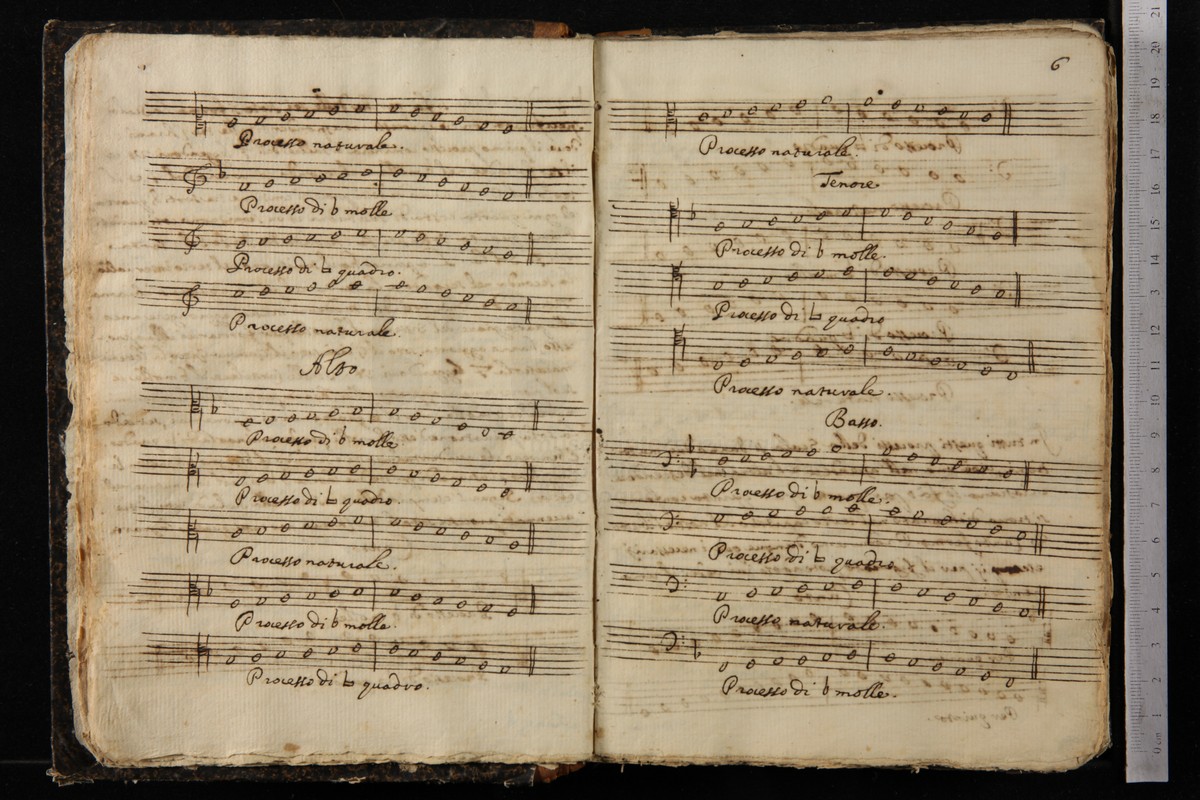 Processo naturale.
Processo di b molle
Processo di ♭ quadro.
Processo naturale.
Alto
Processo di b molle
Processo di ♭ quadro.
Processo naturale.
Processo di b molle.
Processo di ♭ quadro.
6
Processo naturale.
Tenore
Processo di b molle.
Processo di ♭ quadro
Processo naturale.
Basso.
Processo di b molle.
Processo di ♭ quadro
Processo naturale.
Processo di b molle.
0 cm 1 2 3 4 5 6 7 8 9 10 11 12 13 14 15 16 17 18 19 20 21